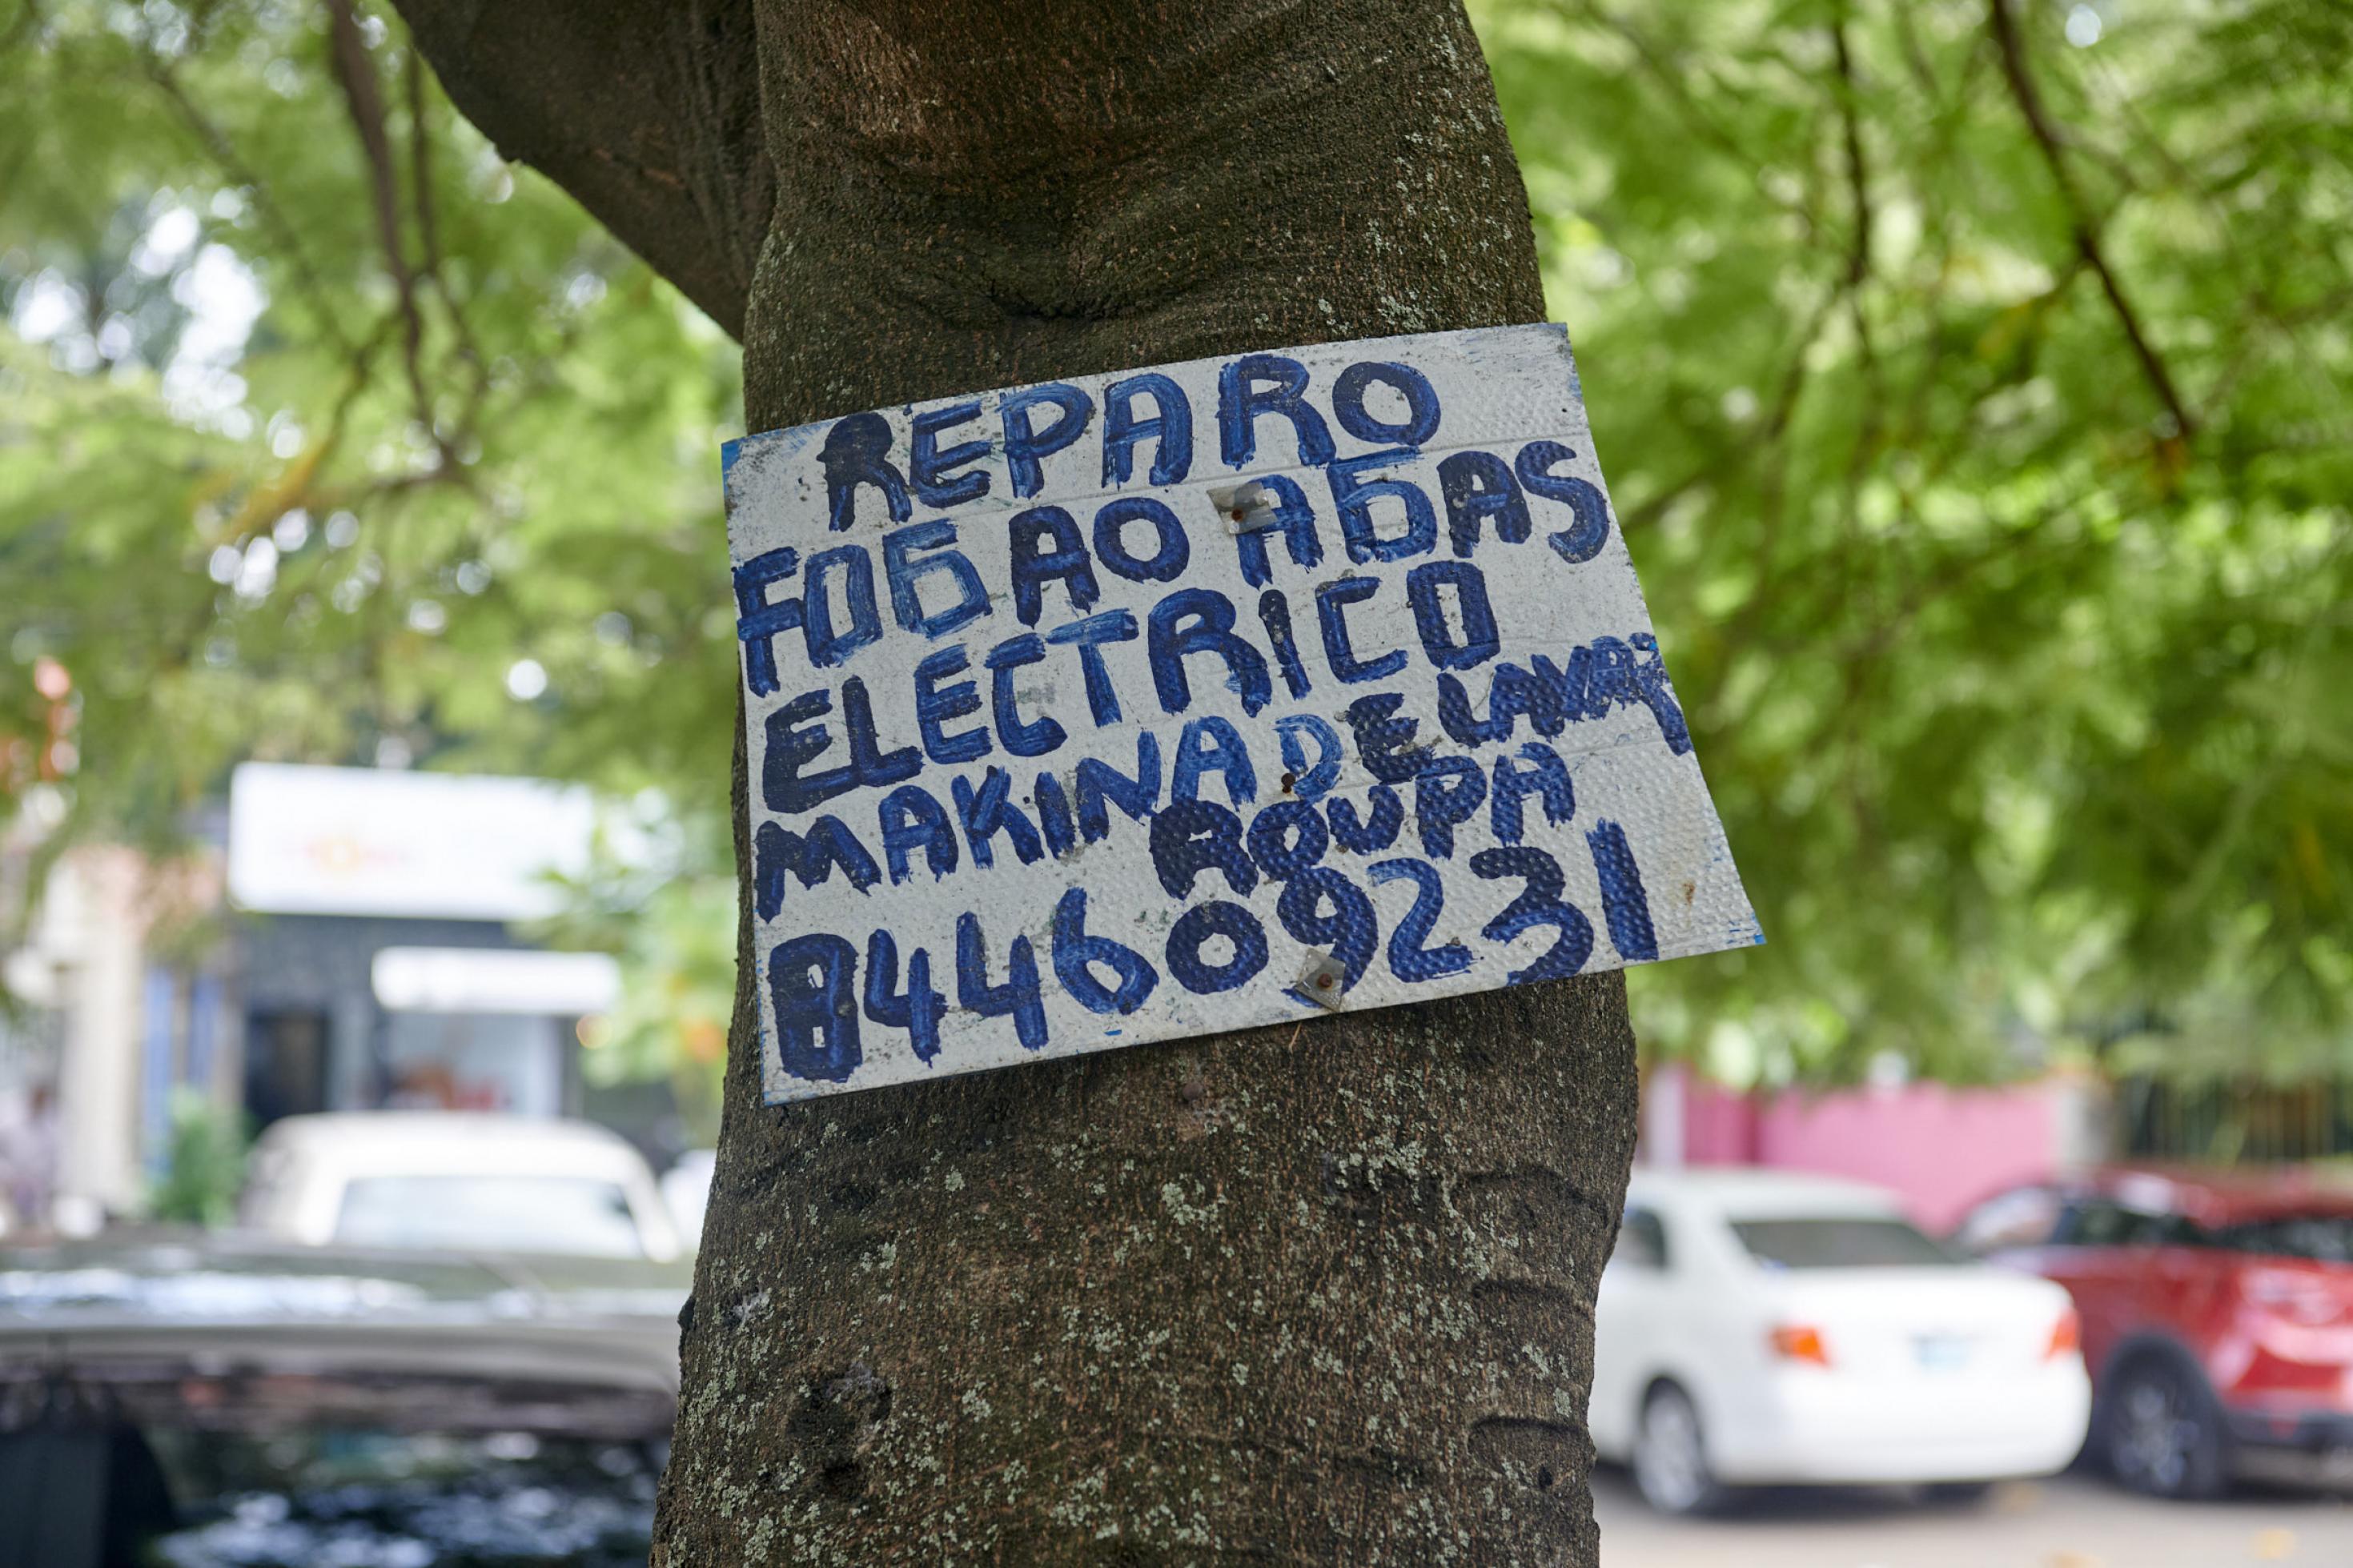 REPARO
FOGAO AGAS
ELECTRICO
MAKINA DE LAVAR
ROUPA
844609231